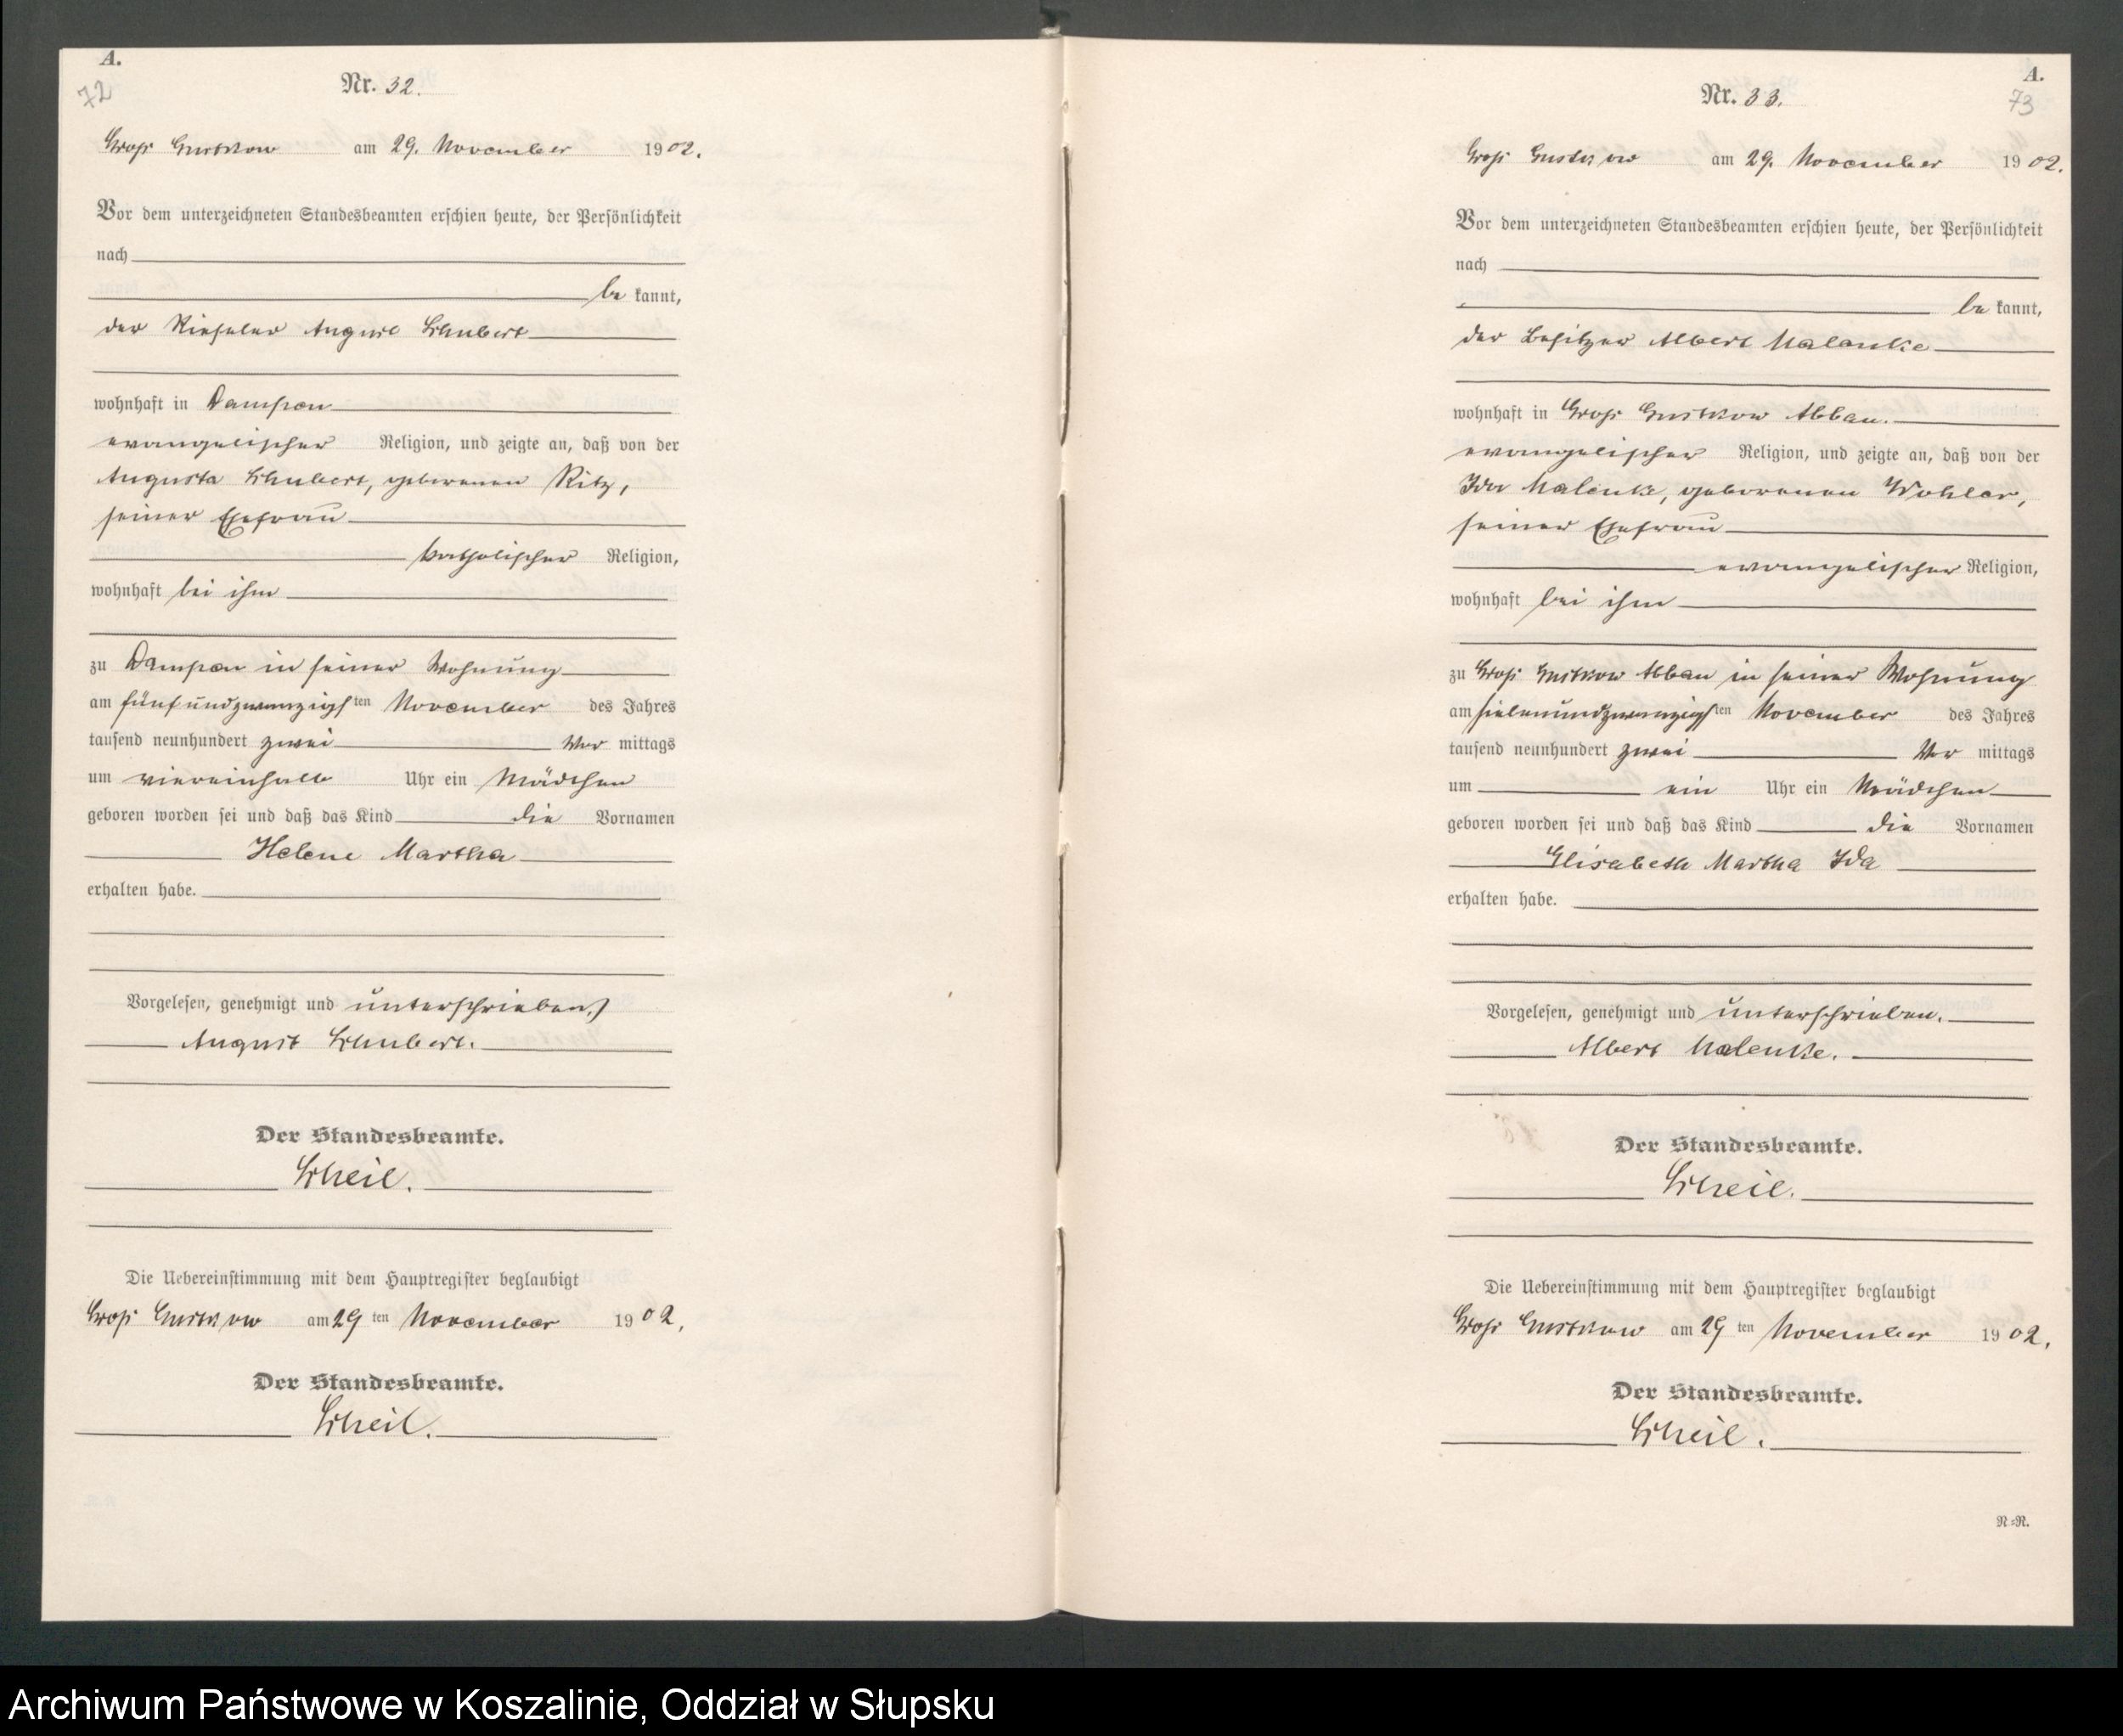 A.
72
Nr. 32.
Groß Gustkow am 29. November 1902.
Vor dem unterzeichneten Standesbeamten erschien heute, der Persönlichkeit
nach
be kannt,
der Rieseler August Schubert
wohnhaft in Dampen
evangelischer Religion, und zeigte an, daß von der
Augusta Schubert, geborenen Ritz,
seiner Ehefrau
katholischer Religion,
wohnhaft bei ihm
zu Dampen in seiner Wohnung
am fünfundzwanzigsten November des Jahres
tausend neunhundert zwei Vor mittags
um viereinhalb Uhr ein Mädchen
geboren worden sei und daß das Kind die Vornamen
Helene Martha
erhalten habe.
Vorgelesen, genehmigt und unterschrieben.
August Schubert.
Der Standesbeamte.
Scheil.
Die Uebereinstimmung mit dem Hauptregister beglaubigt
Groß Gustkow am 29 ten November 1902.
Der Standesbeamte.
Scheil.
A.
73
Nr. 33.
Groß Gustkow am 29. November 1902.
Vor dem unterzeichneten Standesbeamten erschien heute, der Persönlichkeit
nach
be kannt,
der Besitzer Albert Malenke
wohnhaft in Groß Gustkow Abbau.
evangelischer Religion, und zeigte an, daß von der
Ida Malenke, geborenen Wohler,
seiner Ehefrau
evangelischer Religion,
wohnhaft bei ihm
zu Groß Gustkow Abbau in seiner Wohnung
am siebenundzwanzigsten November des Jahres
tausend neunhundert zwei Vor mittags
um ein Uhr ein Mädchen
geboren worden sei und daß das Kind die Vornamen
Elisabeth Martha Ida
erhalten habe.
Vorgelesen, genehmigt und unterschrieben.
Albert Malenke.
Der Standesbeamte.
Scheil.
Die Uebereinstimmung mit dem Hauptregister beglaubigt
Groß Gustkow am 29 ten November 1902.
Der Standesbeamte.
Scheil.
N=R.
Archiwum Państwowe w Koszalinie, Oddział w Słupsku